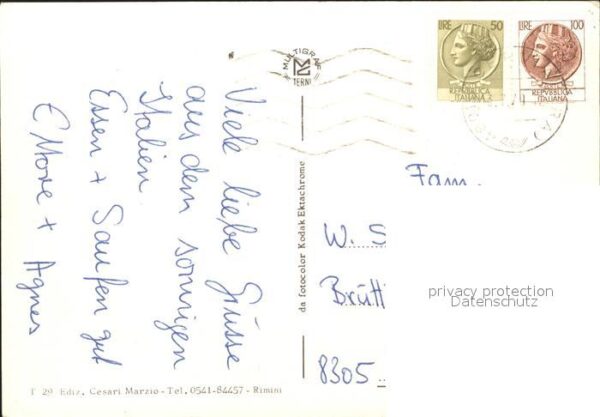 LIRE 50
REPVBBLICA
ITALIANA
LIRE 100
REPVBBLICA
ITALIANA
MULTIGRAF
TERNI
Viele liebe Grüsse
aus dem sonnigen
Italien.
Essen + Saufen gut
+ Agnes
da fotocolor Kodak Ektachrome
Fam.
W. S
Brütt
8305
privacy protection
Datenschutz
T 29 Ediz. Cesari Marzio - Tel. 0541-84457 - Rimini